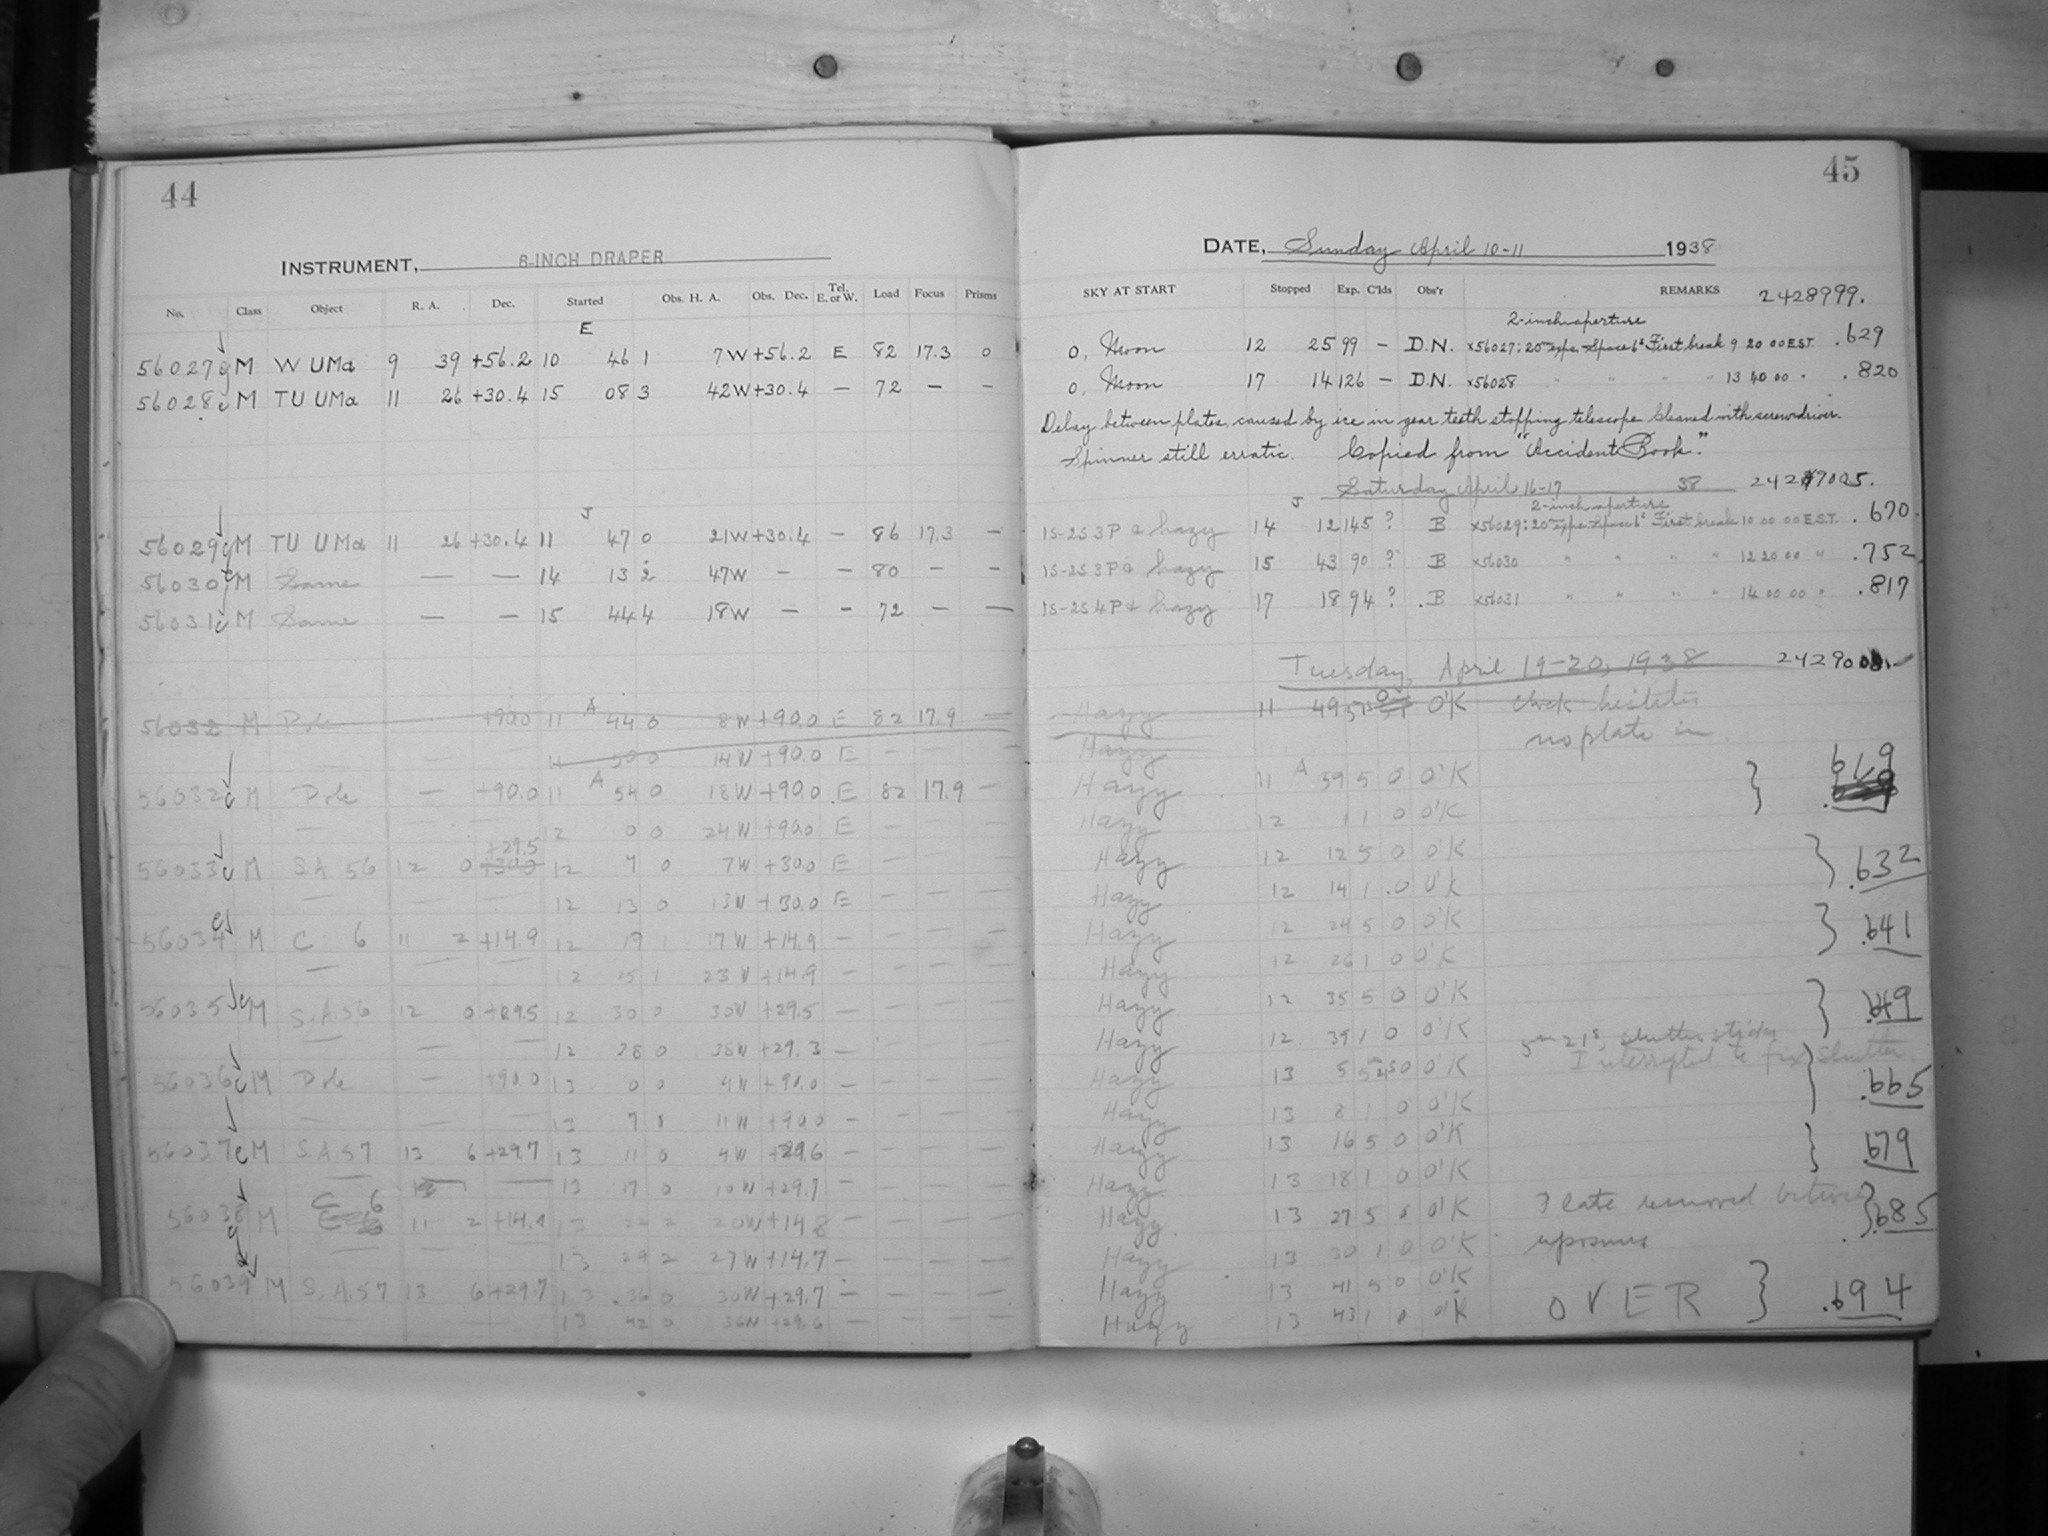 44
INSTRUMENT, 8-INCH DRAPER
No. Class Object R. A. Dec. Started Obs. H. A. Obs. Dec. Tel. E. or W. Load Focus Prisms
E
56027 M W UMa 9 39 +56.2 10 46 1 7W +56.2 E 82 17.3 0
56028 M TU UMa 11 26 +30.4 15 08 3 42W +30.4 — 72 — —
J
56029 M TU UMa 11 26 +30.4 11 47 0 21W +30.4 — 86 17.3 —
56030 M Same — — 14 13 2 47W — — 80 — —
56031 M Same — — 15 44 4 18W — — 72 — —
56032 M Pole +90.0 11 A 44 0 8W +90.0 E 82 17.9 —
11 50 0 14W +90.0 E — — —
56032 M Pole — +90.0 11 A 54 0 18W +90.0 E 82 17.9 —
— — — 12 0 0 24W +90.0 E — — —
+29.5
56033 M S.A. 56 12 0 +30.0 12 7 0 7W +30.0 E — — —
— — — 12 13 0 13W +30.0 E — — —
56034 M C 6 11 2 +14.9 12 19 1 17W +14.9 — — — —
— — — 12 25 1 23W +14.9 — — — —
56035 M S.A. 56 12 0 +29.5 12 30 0 30W +29.5 — — — —
— — — 12 38 0 38W +29.3 — — — —
56036 M Pole — +90.0 13 0 0 4W +90.0 — — — —
— — 13 7 0 11W +90.0 — — — —
56037 M S.A. 57 13 6 +29.7 13 11 0 4W +29.6 — — — —
— — 13 17 0 10W +29.7 — — — —
56038 M C 6 11 2 +14.9 13 22 2 20W +14.8 — — — —
— — 13 29 2 27W +14.7 — — — —
56039 M S.A. 57 13 6 +29.7 13 36 0 30W +29.7 — — — —
— — 13 42 0 36W +29.6 — — — —
45
DATE, Sunday April 10-11 1938
SKY AT START Stopped Exp. C'lds Obs'r REMARKS 2428999.
2-inch aperture
0, Moon 12 25 99 — D.N. x56027: 20 expo. Space 6s First break 9 20 00 EST. .629
0, Moon 17 14 126 — D.N. x56028 " " " " 13 40 00 " .820
Delay between plates, caused by ice in gear teeth stopping telescope. Cleaned with screwdriver.
Spinner still erratic. Copied from "Accident Book."
Saturday April 16-17 38 2429005.
J 2-inch aperture
1S-2S 3P hazy 14 12 145 ? B x56029: 20 expo. Space 6s First break 10 00 00 E.S.T. .670
1S-2S 3P hazy 15 43 90 ? B x56030 " " " " 12 20 00 " .752
1S-2S 4P hazy 17 18 94 ? B x56031 " " " " 14 00 00 " .817
Tuesday, April 19-20, 1938 2429008.
Hazy 11 49 5 O'K Clock hesitates
Hazy no plate in.
Hazy 11 A 59 5 0 O'K } 619
Hazy 12 1 1 0 O'K
Hazy 12 12 5 0 O'K } .632
Hazy 12 14 1 0 O'K
Hazy 12 24 5 0 O'K } .641
Hazy 12 26 1 0 O'K
Hazy 12 35 5 0 O'K } .649
Hazy 12 39 1 0 O'K 5m 21s, shutter sticky
I interrupted to fix shutter.
Hazy 13 5 5m 21s 0 O'K } .665
Hazy 13 8 1 0 O'K
Hazy 13 16 5 0 O'K } .679
Hazy 13 18 1 0 O'K
Hazy 13 27 5 0 O'K Plate removed between } .685
Hazy 13 30 1 0 O'K exposures
Hazy 13 41 5 0 O'K OVER } .694
Hazy 13 43 1 0 O'K